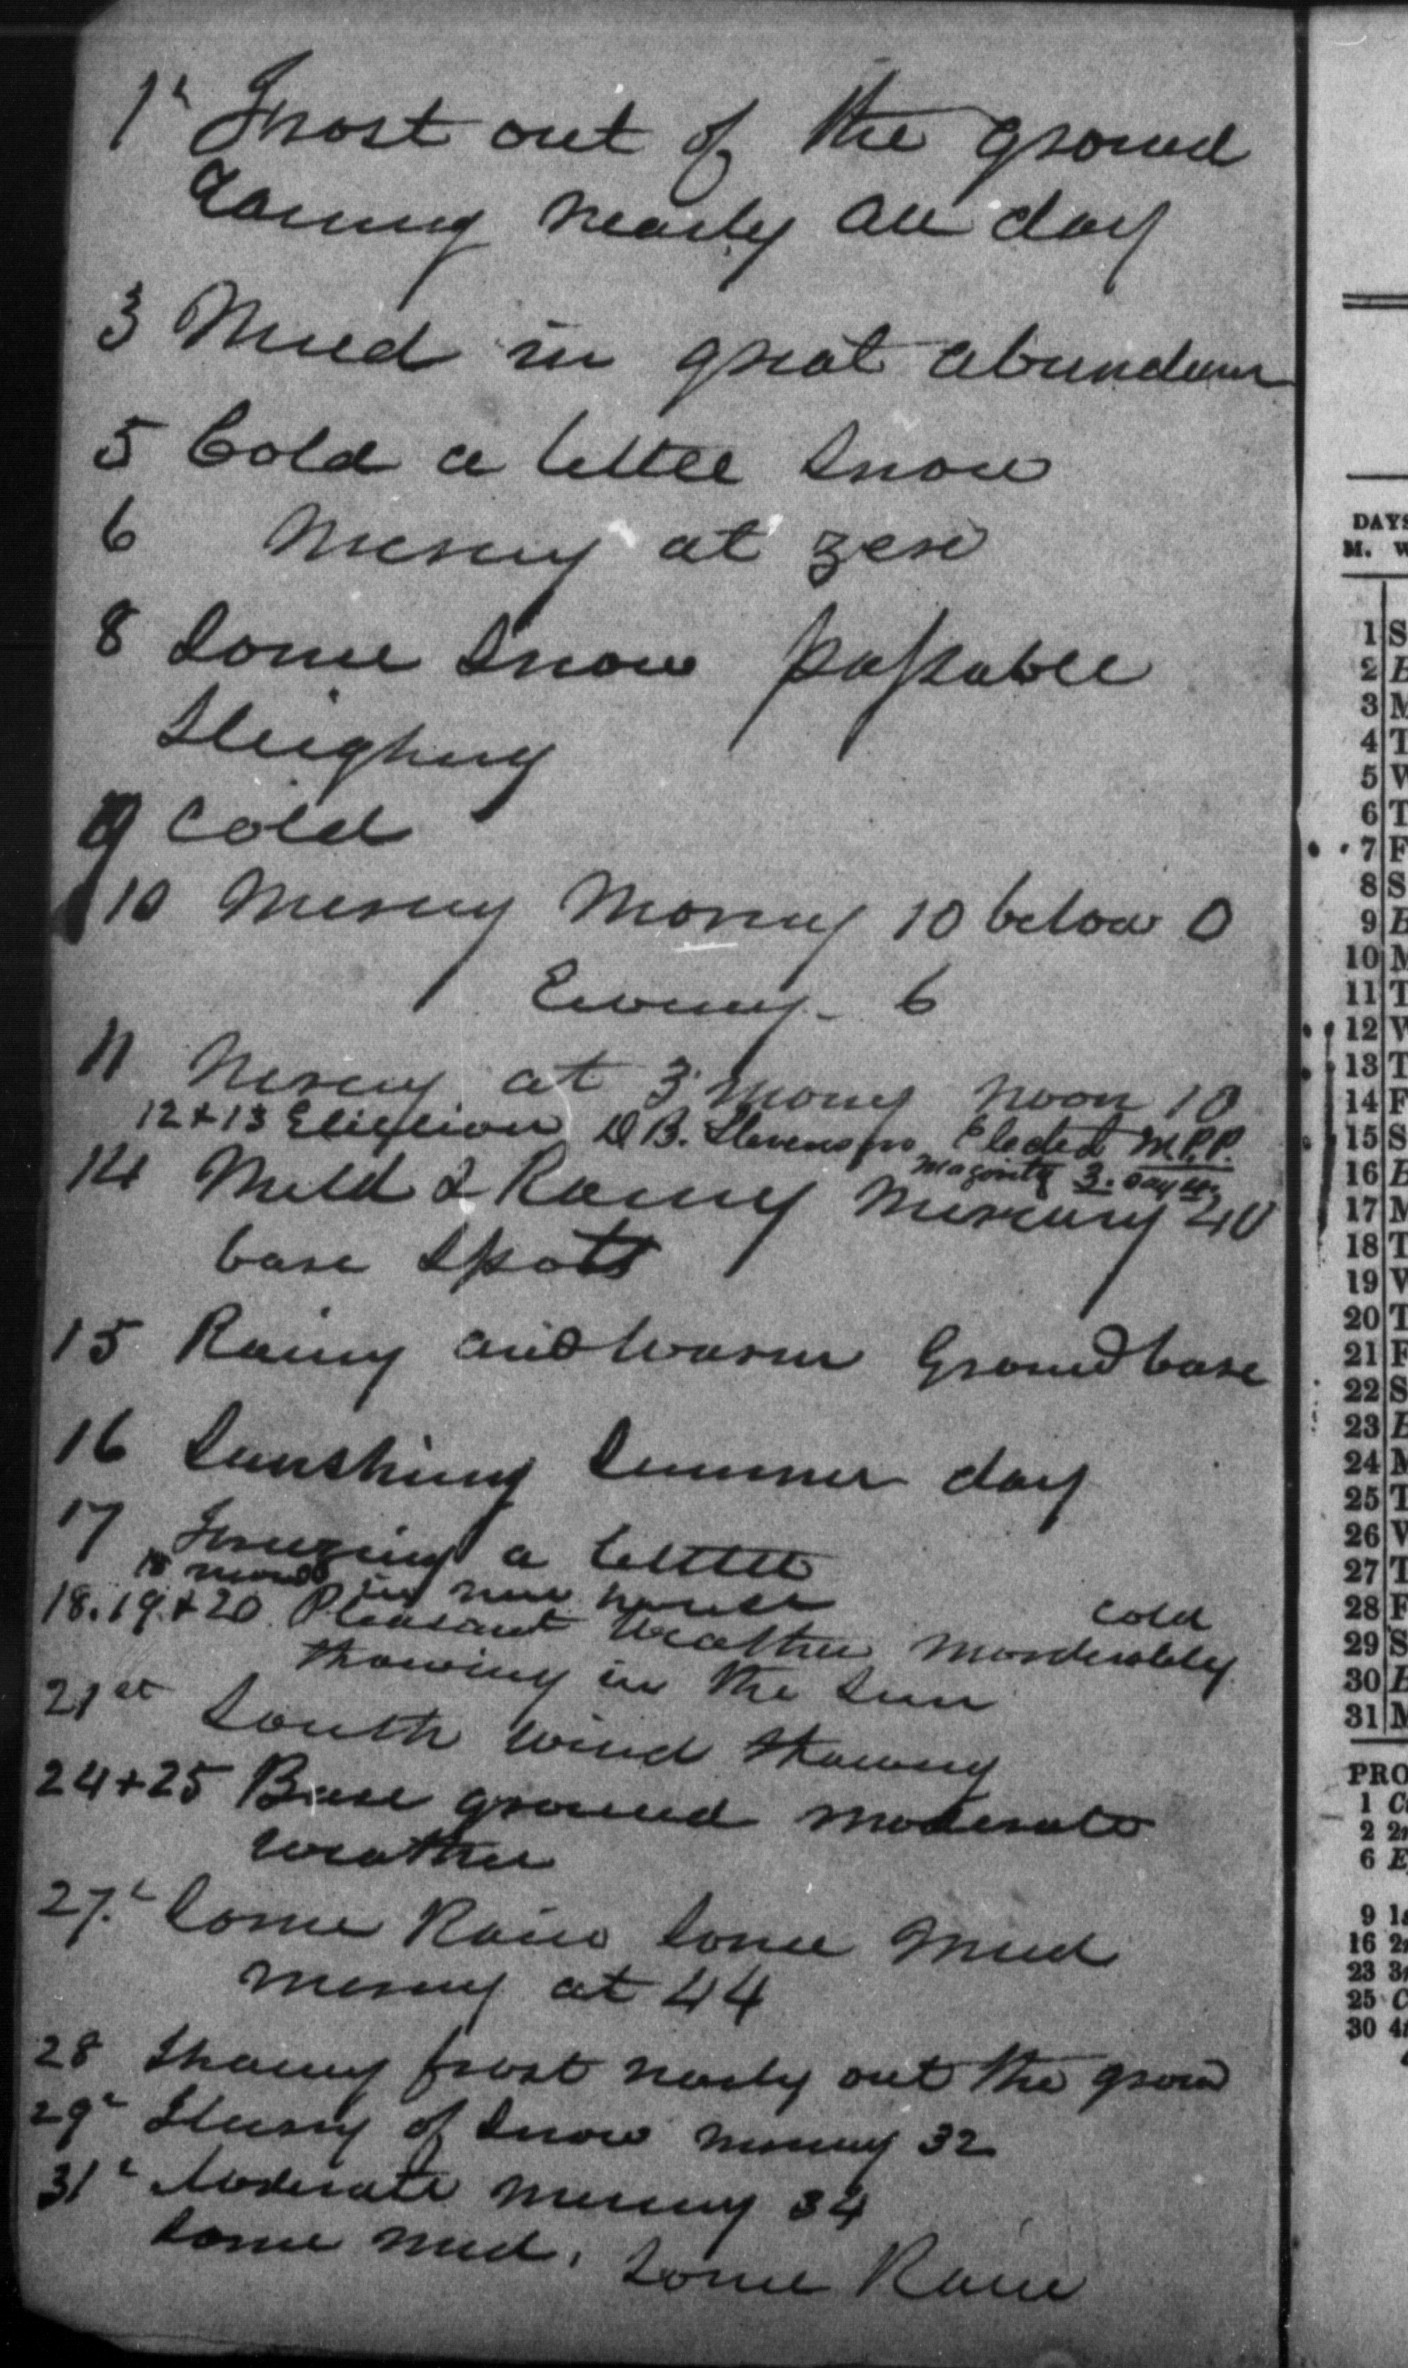 1st Frost out of the ground
Raining nearly all day
3 Mud in great abundan
5 Cold a little Snow
6 Mercury at zero
8 Some Snow passable
Sleighing
9 Cold
10 Mercury Morning 10 below 0
Evening - 6
11 Mercury at 3 morng noon 10
12+13 Election D B. Stevenson Elected M.P.P.
Majority 3.
14 Mild & Rainy Mercury 40
bare Spots
15 Rainy and Warm Ground bare
16 Sunshiny Summer day
17 Freezing a little
18 moved in new house
18.19.+20 Pleasant Weather Moderately cold
thawing in the Sun
21st South Wind thawing
24+25 Bare ground moderate
weather
27. Some Rain Some Mud
mercury at 44
28 Thawing frost nearly out the groun
29 Flurry of Snow mercury 32
31 Moderate mercury 34
Some mud. Some Rain
DAYS
M. W
1 S
2 E
3 M
4 T
5 W
6 T
7 F
8 S
9 E
10 M
11 T
12 W
13 T
14 F
15 S
16 E
17 M
18 T
19 W
20 T
21 F
22 S
23 E
24 M
25 T
26 W
27 T
28 F
29 S
30 E
31 M
PRO
1 C
2 2
6 E
9 1
16 2
23 3
25 C
30 4